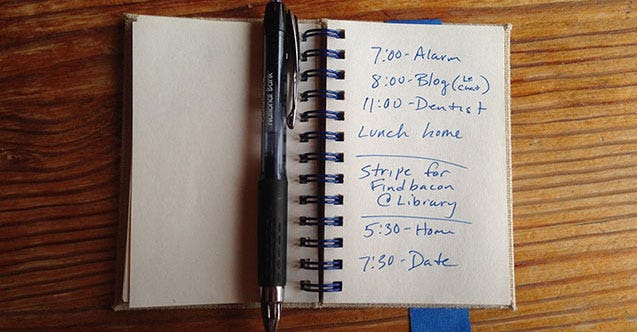 National Bank
7:00-Alarm
8:00-Blog (Le Chat)
11:00-Dentist
Lunch home
Stripe for
Findbacon
@ Library
5:30-Home
7:30-Date